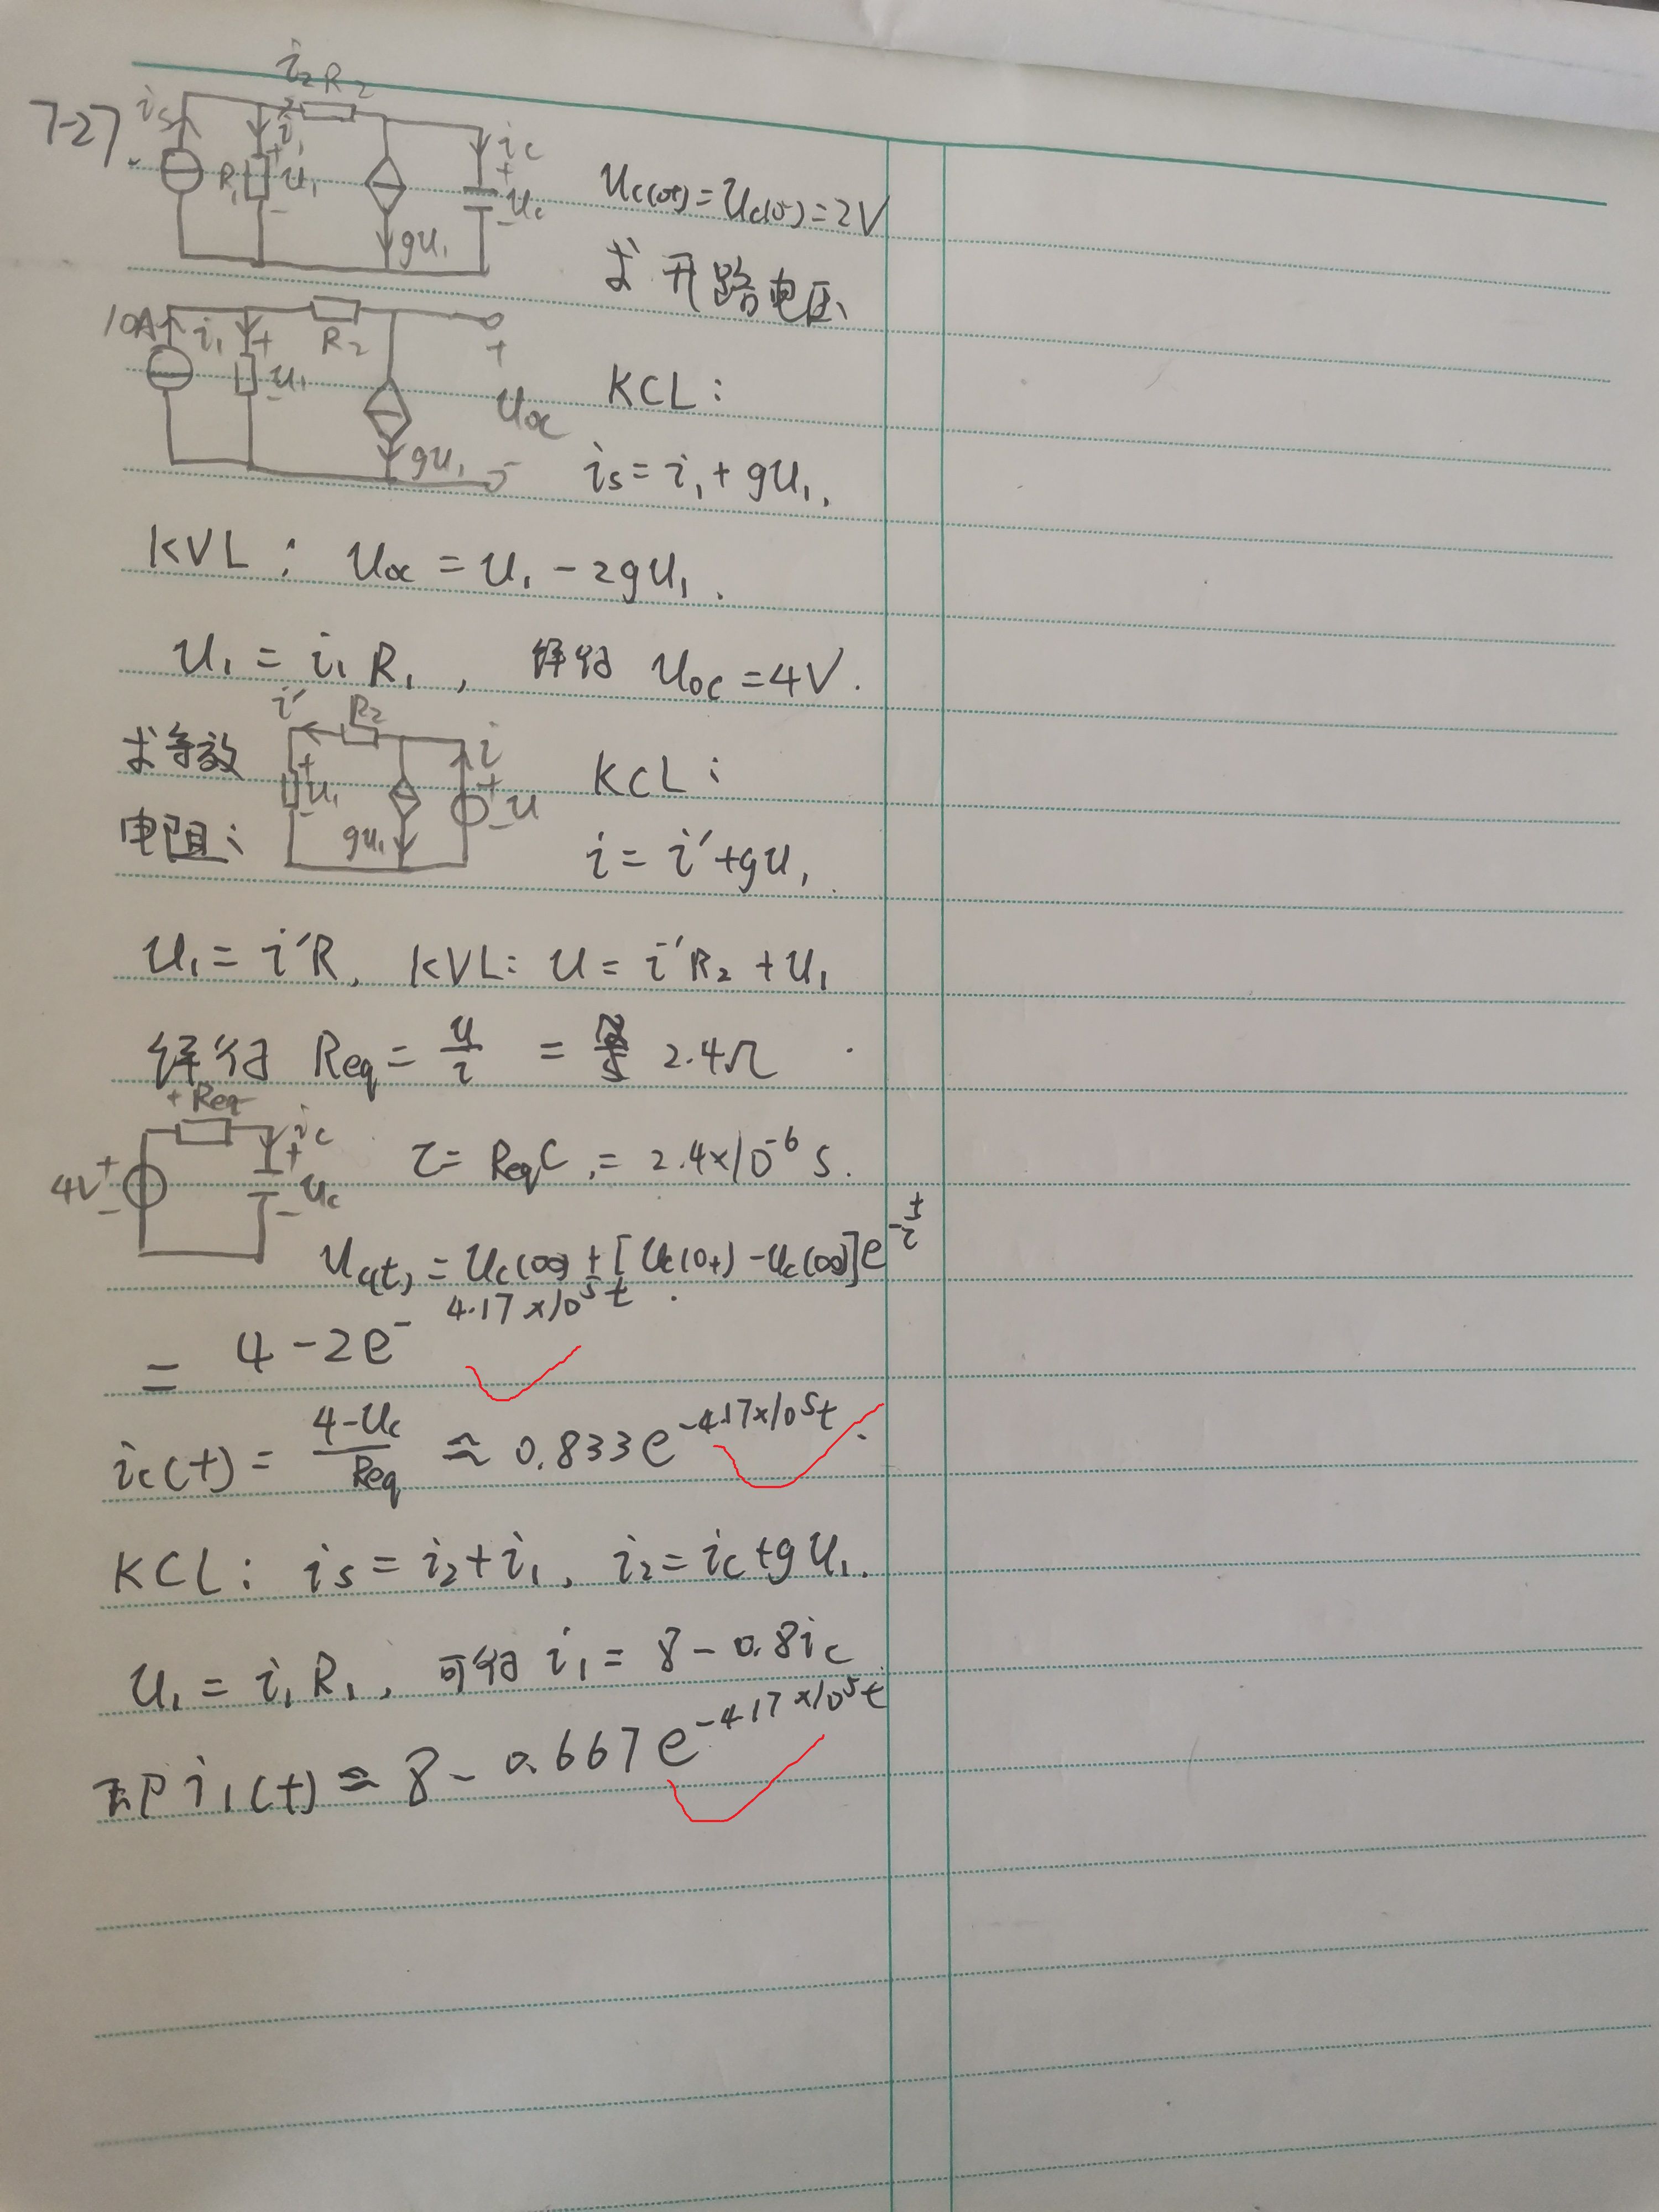 7-27.
iₛ i₂ R₂
R₁ i₁ + u₁ - gu₁ i_c + u_c -
u_c(0+) = u_c(0-) = 2V
求开路电压、
10A i₁ + u₁ - R₂ gu₁ + u_oc -
KCL:
iₛ = i₁ + gu₁,
KVL: u_oc = u₁ - 2gu₁.
u₁ = i₁R₁, 解得 u_oc = 4V.
求等效
电阻:
i' R₂ + u₁ gu₁ i + u -
KCL:
i = i' + gu₁
u₁ = i'R, KVL: u = i'R₂ + u₁
解得 Req = u/i = 2.4Ω
+ Req i_c + u_c - 4V + -
τ = ReqC, = 2.4×10⁻⁶ s.
u_c(t) = u_c(∞) + [u_c(0+) - u_c(∞)]e^(-t/τ)
= 4 - 2e^(-4.17×10⁵t).
i_c(t) = (4-u_c)/Req ≈ 0.833e^(-4.17×10⁵t).
KCL: iₛ = i₂ + i₁, i₂ = i_c + gu₁.
u₁ = i₁R₁, 可得 i₁ = 8 - 0.8i_c
即 i₁(t) ≈ 8 - 0.667e^(-4.17×10⁵t)